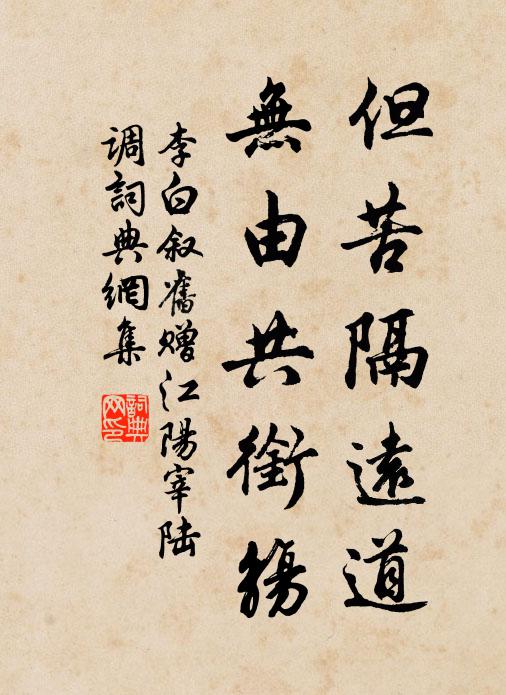 但苦隔遠道
無由共銜觴
李白叙舊赠江陽宰陆
调詞典網集
詞典网印